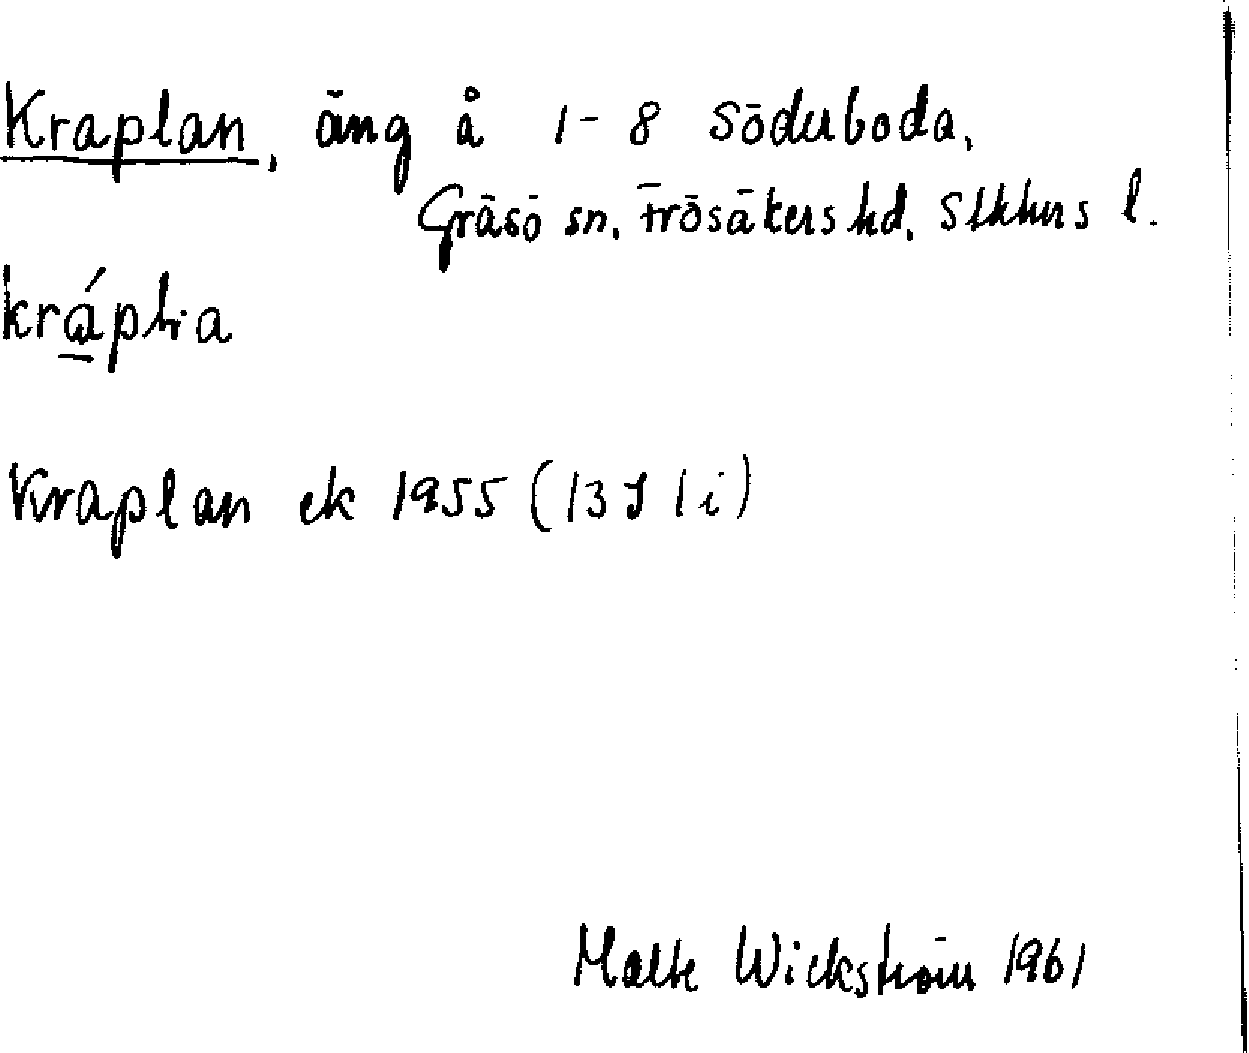 Kraplan, äng å 1-8 Söderboda,
Gräsö sn, Frösåkers hd, Sthlms l.
Kraplan ek 1955 (13 J 1 i)
Malte Wickström 1961